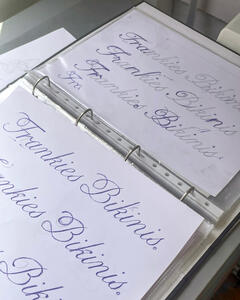 Frankies Bikinis.
Frankies Bikinis.
Frankies Bikinis.
Fra
Frankies Bikinis.
Frankies Bikinis.
Bikinis